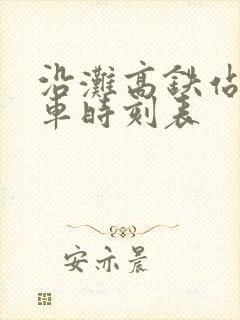 沿灘高鉄站
車時刻表
安亦晨